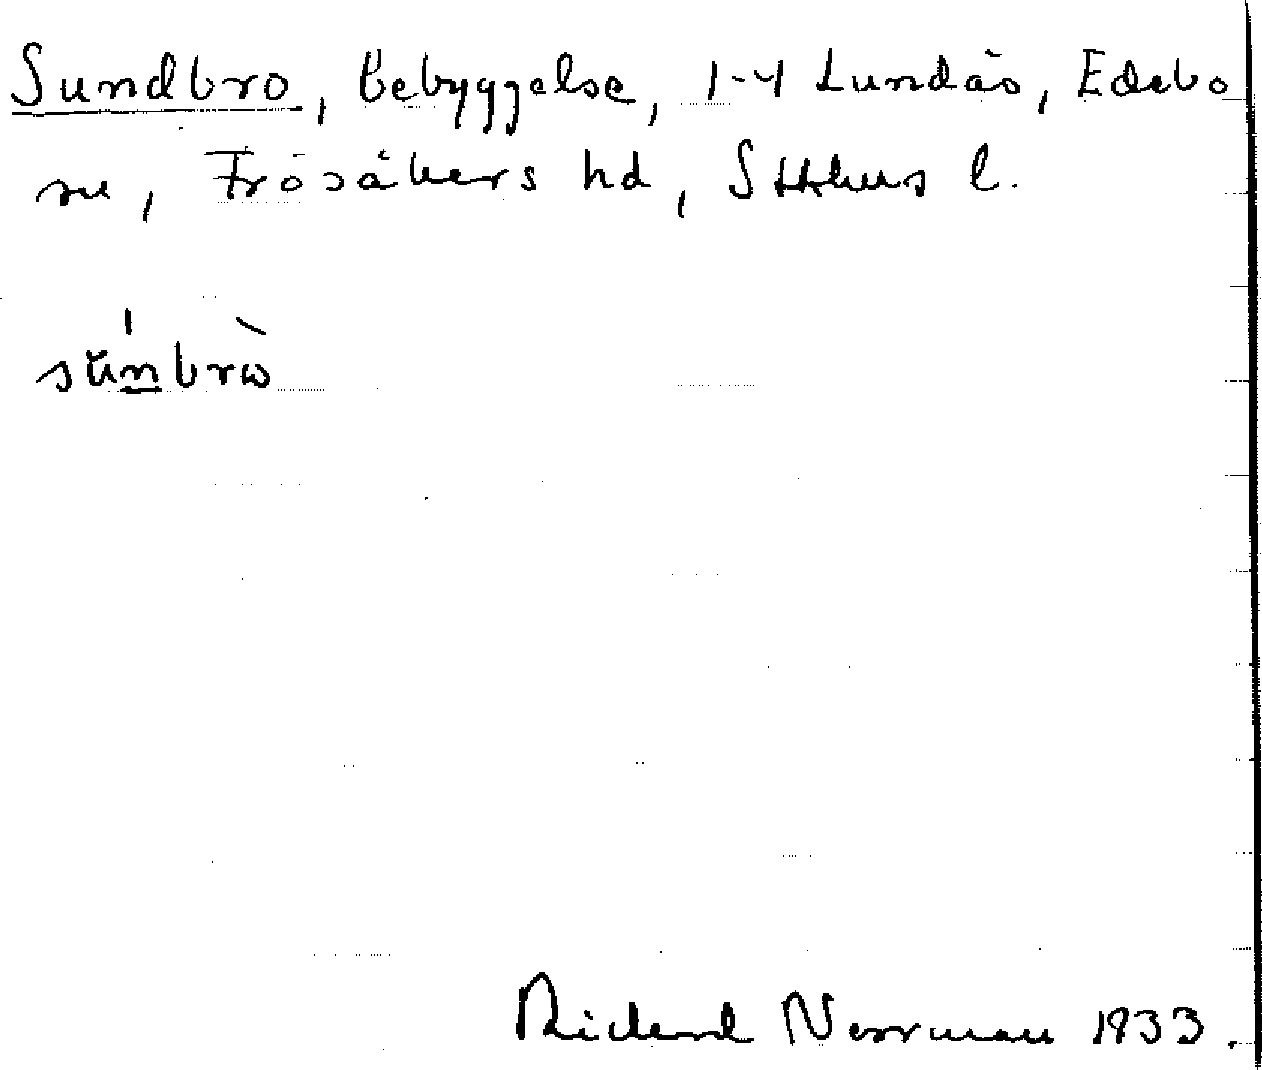 Sundbro, bebyggelse, 1-4 Lundås, Edebo
sn, Frösåkers hd, Sthlms l.
súnbrò
Rickard Norrman 1933.